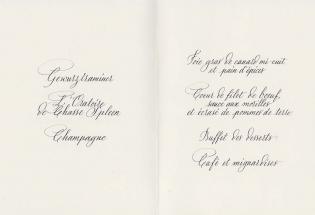 Gewurztraminer
L'Oratoire
de Chasse Spleen
Champagne
Foie gras de canard mi-cuit
et pain d'épices
Coeur de filet de boeuf,
sauce aux morilles
et écrasé de pommes de terre
Buffet des desserts
Café et mignardises